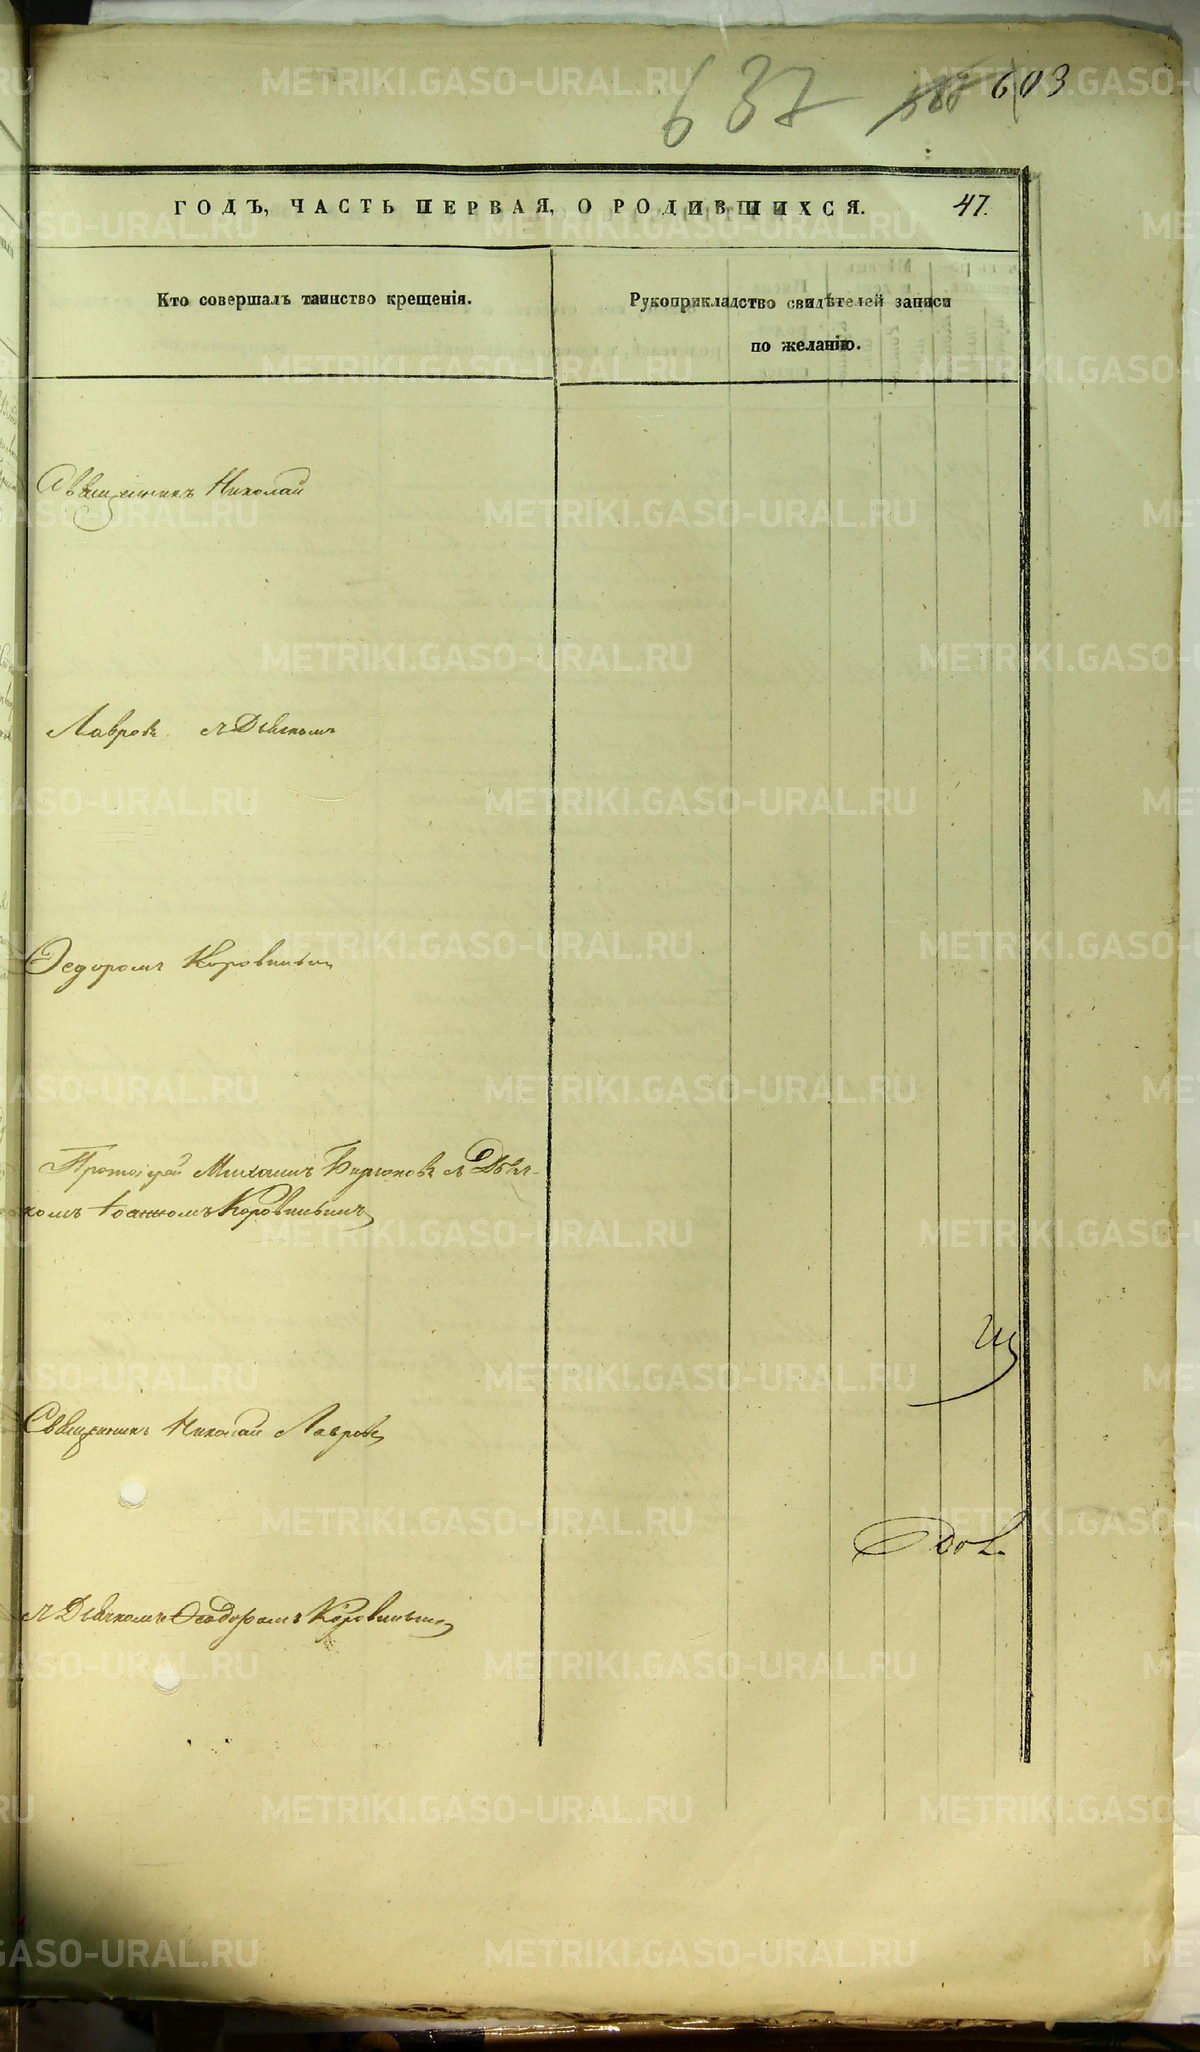 637 603
ГОДЪ, ЧАСТЬ ПЕРВАЯ, О РОДИВШИХСЯ. 47.
Кто совершалъ таинство крещенія.
Рукоприкладство свидѣтелей записи
по желанію.
Священникъ Николай
Лавровъ съ Дьячкомъ
Ѳедоромъ Коровинымъ
Протоіерей Михаилъ Бирюковъ съ Дьяч-
комъ Іоанномъ Коровинымъ
Священникъ Николай Лавровъ
съ Дьячкомъ Ѳеодоромъ Коровинымъ
METRIKI.GASO-URAL.RU